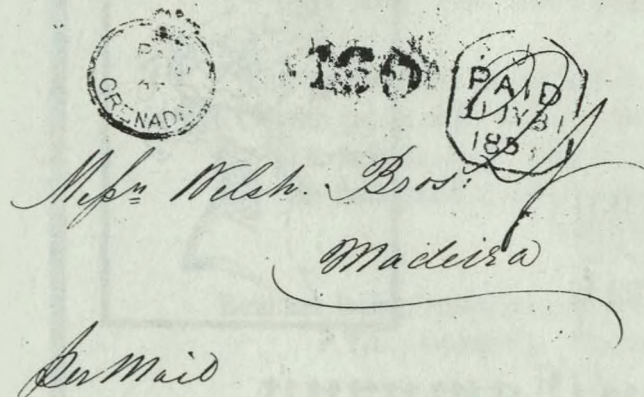 GRENADA
160
PAID
1 JY 31
185
Messrs Welsh Bros:
Madeira
per Mail